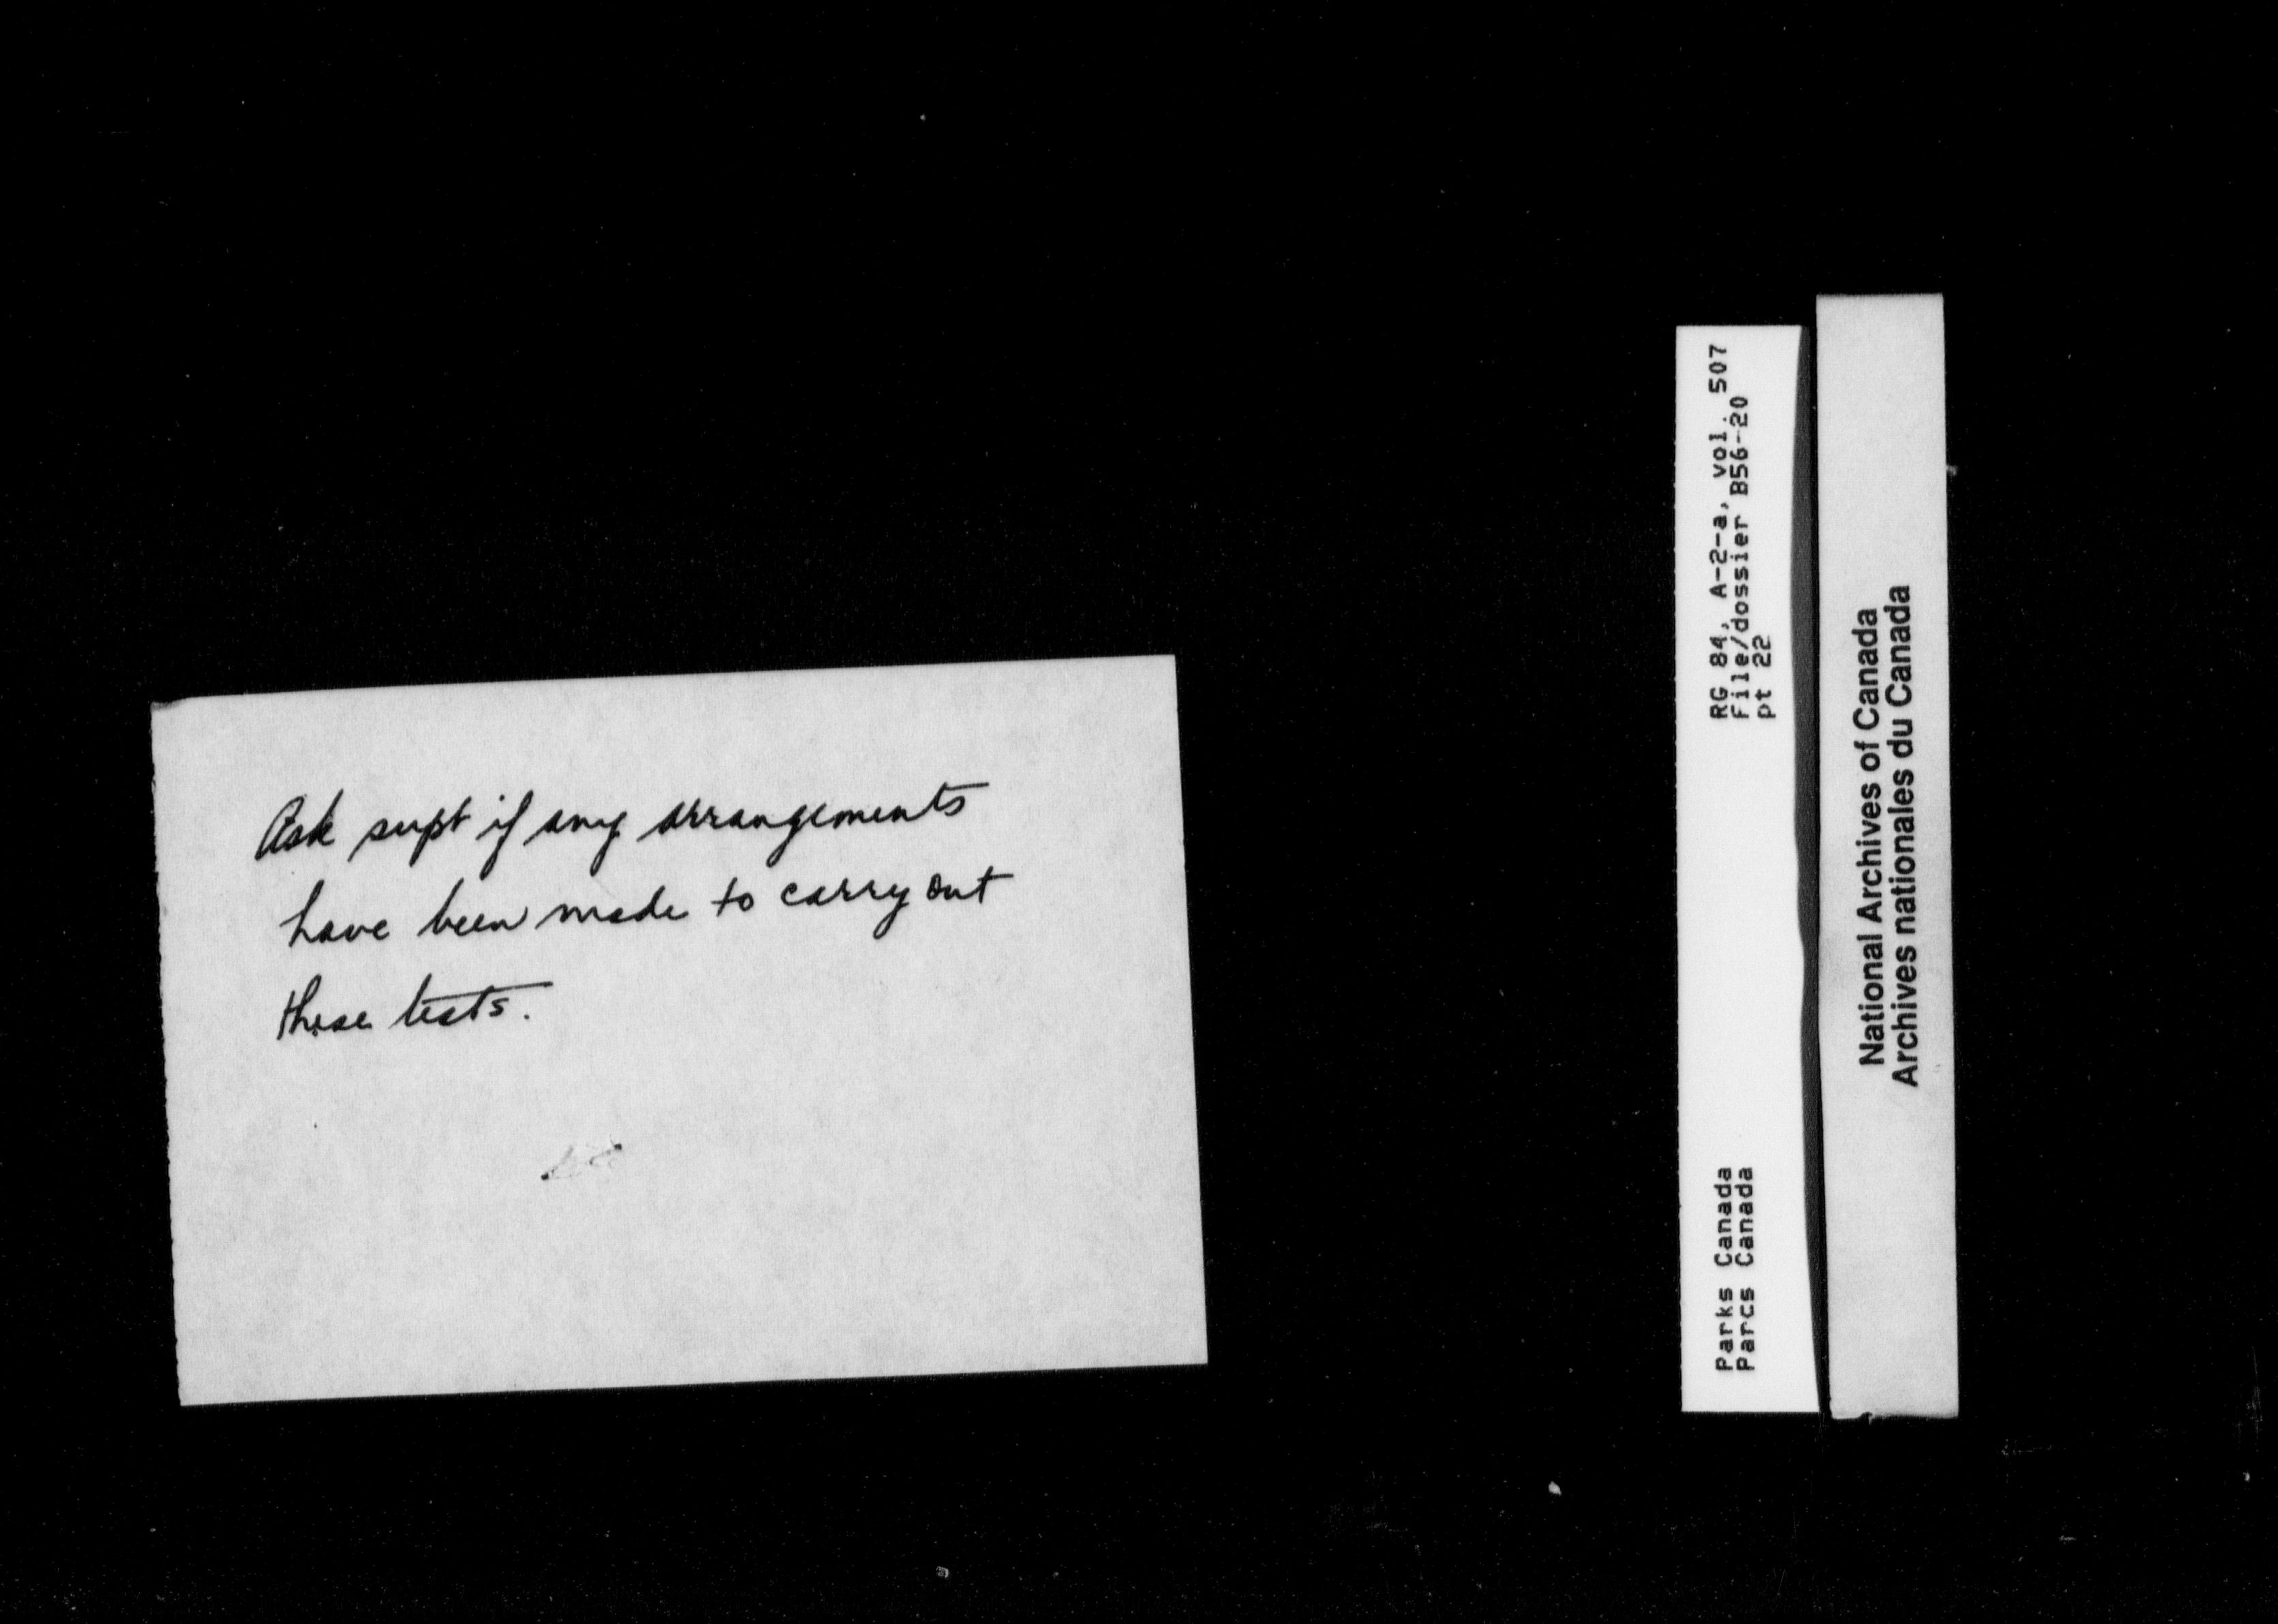 Ask supt if any arrangements
have been made to carry out
these tests.
RG 84, A-2-a, vol. 507
File/dossier B56-20
pt 22
Parks Canada
Parcs Canada
National Archives of Canada
Archives nationales du Canada